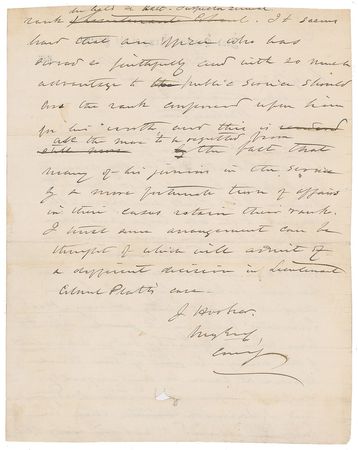 he held as Asst. Inspector General
rank Lieutenant Colonel. It seems
hard that an officer who has
served so faithfully and with so much
advantage to the public service should
lose the rank conferred upon him
for his worth and this is
all the more to be regretted from
the fact that
many of his juniors in the service
by a more fortunate turn of affairs
in their cases retain their rank.
I trust some arrangement can be
thought of which will admit of
a different decision in Lieutenant
Colonel Platt's case.
J. Hooker
Maj Genl
Comg